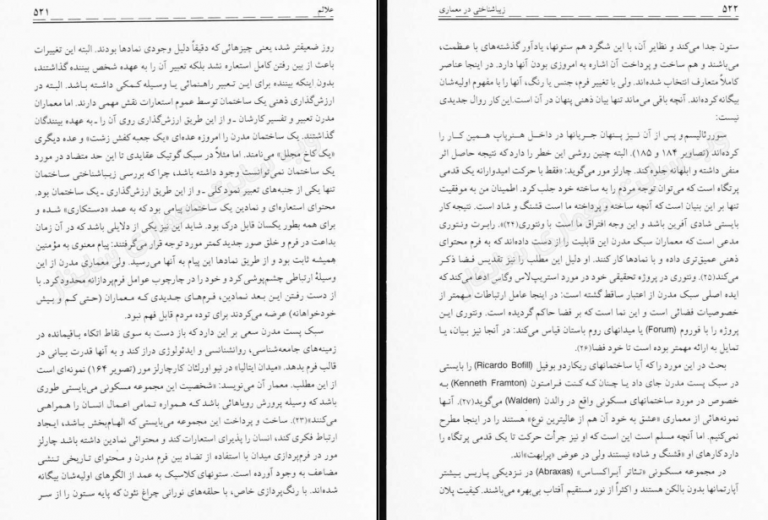 علائم ۵۲۱
روز ضعیفتر شد، یعنی چیزهائی که دقیقاً دلیل وجودی نمادها بودند. البته این تغییرات
باعث از بین رفتن کامل استعاره نشد بلکه تعبیر آن را به عهده شخص بیننده گذاشتند،
بدون اینکه بیننده برای این تعبیر راهنمائی یا وسیله کمکی داشته باشد. البته در
ارزش‌گذاری ذهنی یک ساختمان توسط عموم استعارات نقش مهمی دارند. اما معماران
مدرن تعبیر و تفسیر کارشان ـ و از این طریق ارزش‌گذاری روی آن را ـ به عهده بینندگان
گذاشتند. یک ساختمان مدرن را امروزه عده‌ای «یک جعبه کفش زشت» و عده دیگری
«یک کاخ مجلل» می‌نامند. اما مثلاً در سبک گوتیک عقایدی تا این حد متضاد در مورد
یک ساختمان نمی‌توانست وجود داشته باشد، چرا که بررسی زیباشناختی ساختمان
تنها یکی از جنبه‌های تعبیر نمود کلی ـ و از این طریق ارزش‌گذاری ـ یک ساختمان بود.
محتوای استعاره‌ای و نمادین یک ساختمان پیامی بود که به عمد «دستکاری» شده و
برای همه بطور یکسان قابل درک بود. شاید این نیز یکی از دلایلی باشد که در آن زمان
بداعت در فرم و خلق صور جدید کمتر مورد توجه قرار می‌گرفتند: پیام معنوی به مؤمنین
همیشه ثابت بود و از طریق نمادها این پیام به آنها می‌رسید. ولی معماری مدرن از این
وسیلهٔ ارتباطی چشم‌پوشی کرد و خود را در چارچوب عوامل فرم‌پردازانه محدود کرد. با
از دست رفتن این بعد نمادین، فرم‌های جدیدی که معماران (حتی کم و بیش
خودخواهانه) عرضه می‌کردند برای توده مردم قابل فهم نبود.
سبک پست مدرن سعی بر این دارد که باز دست به سوی نقاط اتکاء باقیمانده در
زمینه‌های جامعه‌شناسی، روانشناسی و ایدئولوژی دراز کند و به آنها قدرت بیانی در
قالب فرم بدهد. «میدان ایتالیا» در نیو اورلئان کار چارلز مور (تصویر ۱۶۴) نمونه‌ای است
از این مطلب. معمار آن می‌نویسد: «شخصیت این مجموعه مسکونی می‌بایستی طوری
باشد که وسیله پرورش رویاهائی باشد که همواره تمامی اعمال انسان را همراهی
می‌کنند»(۲۳). ساخت و پرداخت این مجموعه می‌بایستی که الهام‌بخش باشد، ایجاد
ارتباط فکری کند، انسان را پذیرای استعارات کند و محتوائی نمادین داشته باشد چارلز
مور در فرم‌پردازی میدان با استفاده از تضاد بین فرم مدرن و محتوای تاریخی تنشی
مضاعف به وجود آورده است. ستونهای کلاسیک به عمد از الگوهای اولیه‌شان بیگانه
شده‌اند. با رنگ‌پردازی خاص، با حلقه‌های نورانی چراغ نئون که پایه ستون را از سر
زیباشناختی در معماری ۵۲۲
ستون جدا می‌کند و نظایر آن، با این شگرد هم ستونها، یادآور گذشته‌های با عظمت،
می‌باشند و هم ساخت و پرداخت آن اشاره به امروزی بودن آنها دارد. در اینجا عناصر
کاملاً متعارف انتخاب شده‌اند. ولی با تغییر فرم، جنس یا رنگ، آنها را با مفهوم اولیه‌شان
بیگانه کرده‌اند. آنچه باقی می‌ماند تنها بیان ذهنی پنهان در آن است. این کار روال جدیدی
نیست:
سوررئالیسم و پس از آن نیز پنهان جریانها در داخل هنرپاپ همین کار را
کرده‌اند (تصاویر ۱۸۴ و ۱۸۵). البته چنین روشی این خطر را دارد که نتیجه حاصل اثر
منفی داشته و ابلهانه جلوه کند. چارلز مور می‌گوید: «فقط با حرکت امیدوارانه یک قدمی
پرتگاه است که می‌توان توجه مردم را به ساخته خود جلب کرد. اطمینان من به موفقیت
تنها بر این بنیان است که آنچه ساخته و پرداخته ما است قشنگ و شاد است. نتیجه کار
بایستی شادی آفرین باشد و این وجه افتراق ما است با ونتوری(۲۴)». رابرت ونتوری
مدعی است که معماران سبک مدرن این قابلیت را از دست داده‌اند که به فرم محتوای
ذهنی عمیق‌تری داده و با نمادها کار کنند. او دلیل این مطلب را نیز تقدیس فضا ذکر
می‌کند(۲۵). ونتوری در پروژه تحقیقی خود در مورد استریپ‌لاس وگاس ادعا می‌کند که
ایده اصلی سبک مدرن از اعتبار ساقط گشته است: در اینجا عامل ارتباطات مهمتر از
خصوصیات فضائی است و این نما است که بر فضا حاکم گردیده است. ونتوری این
پروژه را با فوروم (Forum) یا میدانهای روم باستان قیاس می‌کند: در آنجا نیز بیان، یا
تمایل به ارائه مهمتر بوده است تا خود فضا(۲۶).
بحث در این مورد را که آیا ساختمانهای ریکاردو بوفیل (Ricardo Bofill) را بایستی
در سبک پست مدرن جای داد یا چنان که کنت فرامتون (Kenneth Framton) به
خصوص در مورد ساختمانهای مسکونی واقع در والدن (Walden) می‌گوید(۲۷). آنها
نمونه‌هائی از معماری «عشق به خود آن هم از عالیترین نوع» هستند را در اینجا مطرح
نمی‌کنیم. اما آنچه مسلم است این است که او نیز جرأت حرکت تا یک قدمی پرتگاه را
دارد کارهای او «قشنگ و شاد» نیستند ولی در عوض «پرابهت»‌اند.
در مجموعه مسکونی «تئاتر آبراکساس» (Abraxas) در نزدیکی پاریس بیشتر
آپارتمانها بدون بالکن هستند و اکثراً از نور مستقیم آفتاب بی‌بهره می‌باشند. کیفیت پلان